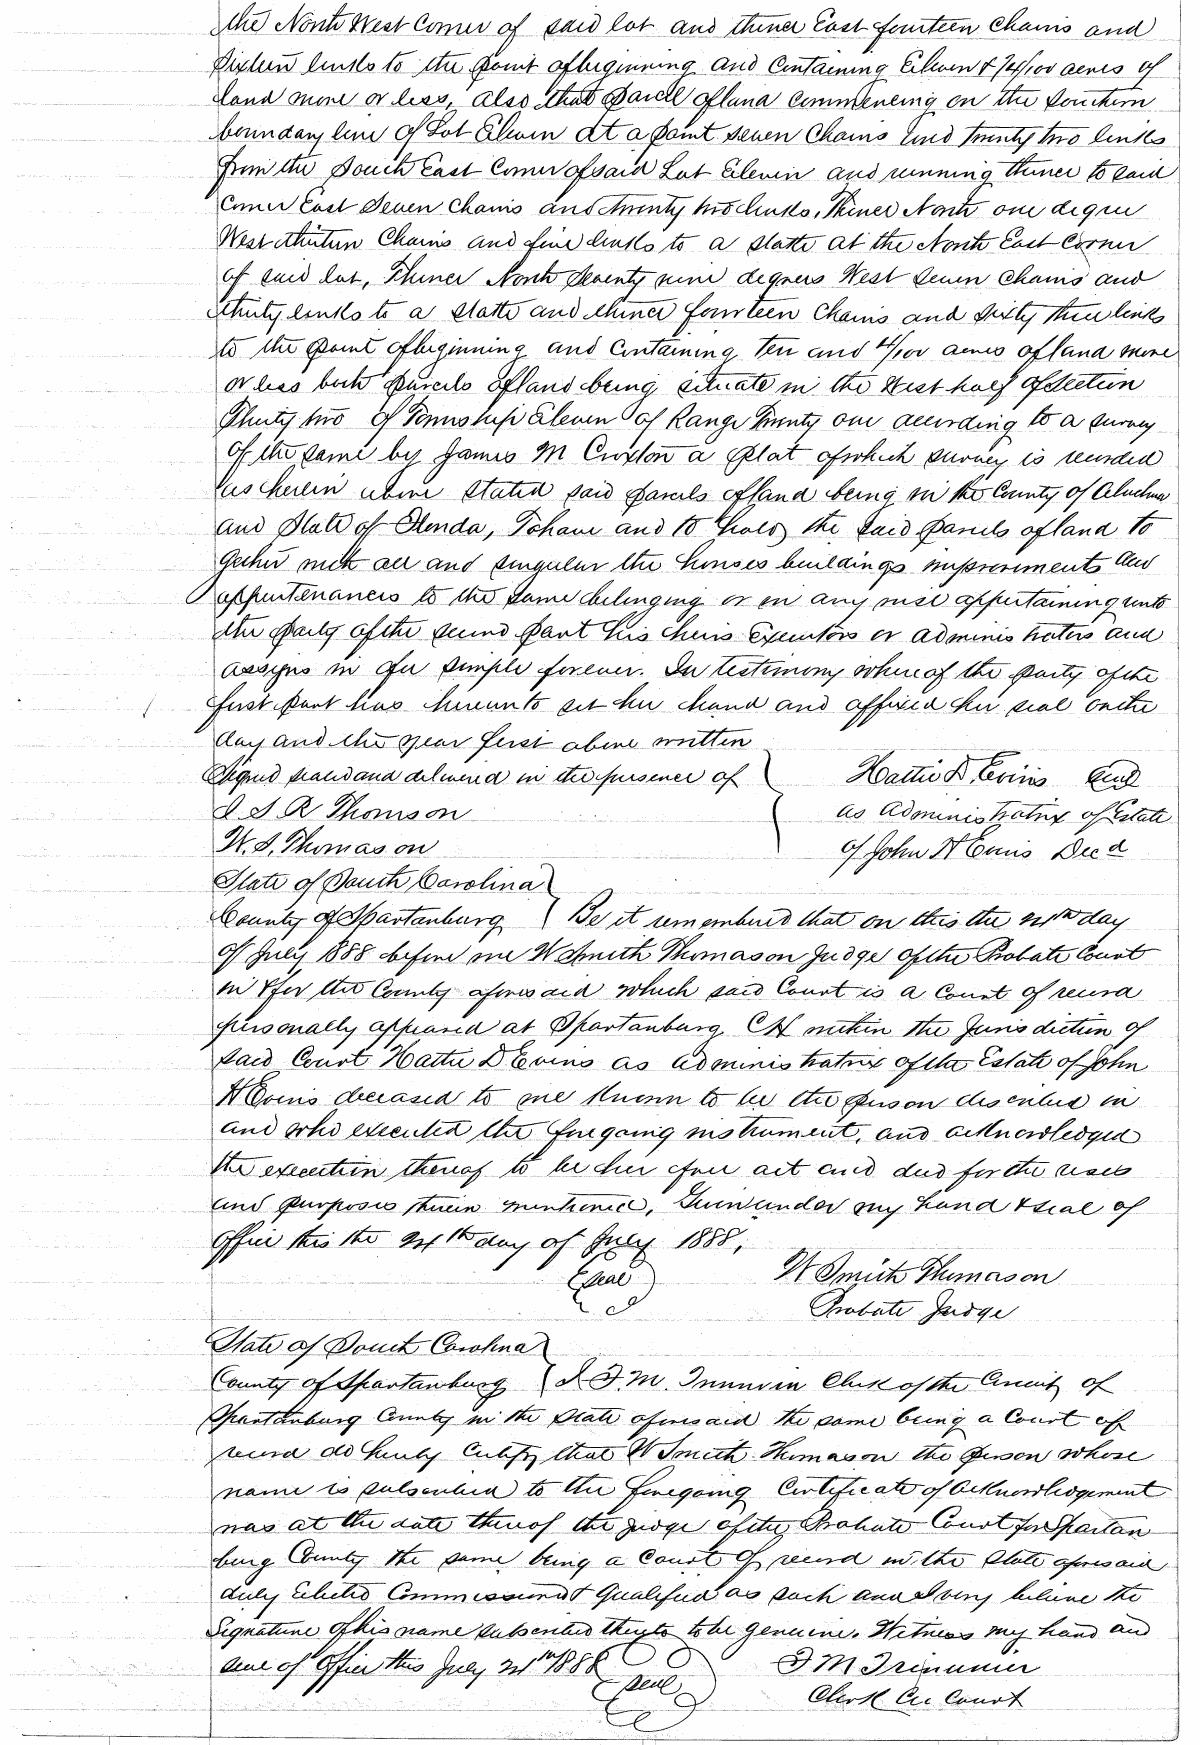 the North West Corner of said lot and thence East fourteen Chains and
Sixteen links to the point of beginning and Containing Eleven & 74/100 acres of
land more or less, also that parcel of land commencing on the Southern
boundary line of Lot Eleven at a point seven Chains and twenty two links
from the South East Corner of said Lot Eleven and running thence to said
Corner East Seven Chains and twenty two links, Thence North one degree
West thirteen Chains and five links to a stake at the North East Corner
of said lot, Thence North Seventy nine degrees West seven Chains and
thirty links to a stake and thence fourteen Chains and sixty three links
to the point of beginning and Containing Ten and 4/100 acres of land more
or less both parcels of land being situate in the West half of Section
Thirty two of Township Eleven of Range Twenty one according to a survey
of the same by James M Croxton a plat of which survey is recorded
as herein above stated said parcels of land being in the County of Alachua
and State of Florida, To have and to hold the said parcels of land to
gether with all and singular the houses buildings improvements and
appurtenances to the same belonging or in any wise appertaining unto
the party of the second part his heirs Executors or administrators and
assigns in fee simple forever. In testimony whereof the party of the
first part has hereunto set her hand and affixed her seal on the
day and the year first above written
Signed sealed and delivered in the presence of Hattie D. Evins Seal
I S R Thomson as Administratrix of Estate
W. S. Thomason of John H Evins Decd
State of South Carolina
County of Spartanburg Be it remembered that on this the 24th day
of July 1888 before me W Smith Thomason Judge of the Probate Court
in & for the County aforesaid which said Court is a Court of record
personally appeared at Spartanburg CH within the Jurisdiction of
said Court Hattie D Evins as administratrix of the Estate of John
H Evins deceased to me known to be the person described in
and who executed the foregoing instrument, and acknowledged
the execution thereof to be her free act and deed for the uses
and purposes therein mentioned, Given under my hand & seal of
office this the 24th day of July 1888,
Seal W Smith Thomason
Probate Judge
State of South Carolina
County of Spartanburg I F. M. Trimmier Clerk of the Circuit of
Spartanburg County in the State aforesaid the same being a Court of
record do hereby Certify that W Smith Thomason the person whose
name is subscribed to the foregoing Certificate of acknowledgement
was at the date thereof the judge of the Probate Court for Spartan
burg County the same being a Court of record in the State aforesaid
duly Elected Commissioned & Qualified as such and I very believe the
Signature of his name subscribed thereto to be genuine. Witness my hand and
seal of Office this July 24th 1888 F M Trimmier
Seal Clerk Cir Court